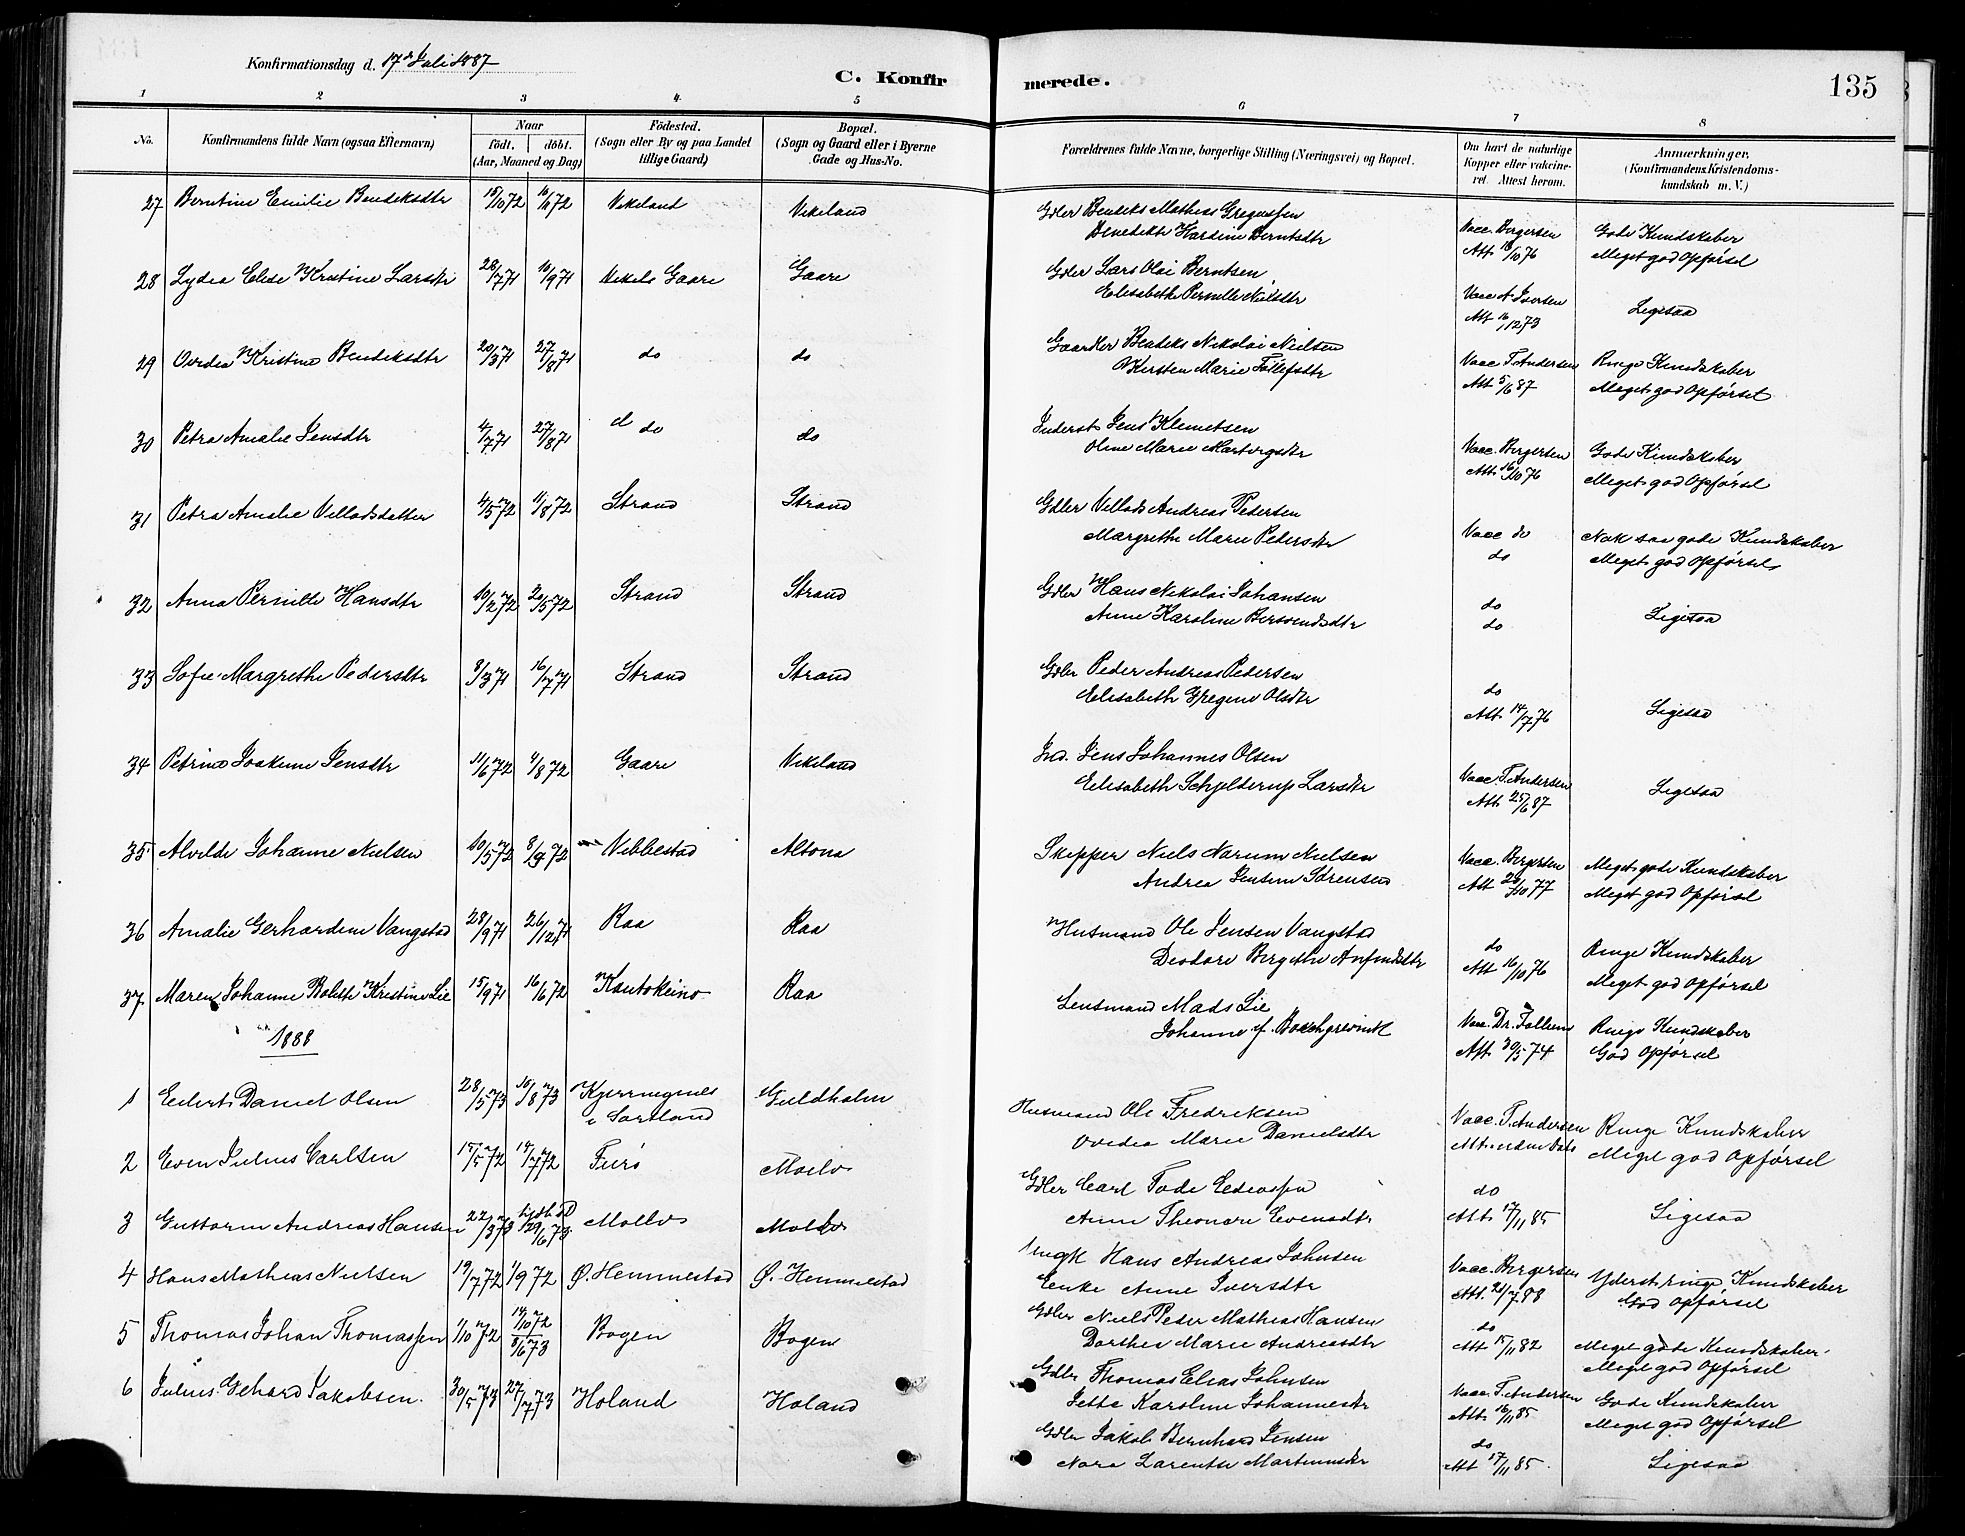 Konfirmationsdag d. 17de Juli 1887
C. Konfirmerede.
135
1 2 3 4 5 6 7 8
No. Konfirmandens fulde Navn (ogsaa Efternavn) Naar födt. döbt. (Aar, Maaned og Dag) Födested. (Sogn eller By og paa Landet tillige Gaard) Bopæl. (Sogn og Gaard eller i Byerne Gade og Hus-No.) Forældrenes fulde Navne, borgerlige Stilling (Næringsvei) og Bopæl. Om havt de naturlige Kopper eller vakcineret. Attest herom. Anmærkninger. (Konfirmandens Kristendomskundskab m. V.)
27 Berntine Emilie Bendeksdtr 15/10 72 Vikeland Vikeland Gdler Bendeks Mathias Gregussen Vacc. Bergersen Gode Kundskaber
Benedikte Hardine Berntsdtr Att 16/10 76 Meget god Opførsel
28 Lydia Elise Kristine Larsdtr 28/7 71 10/9 71 Vikels Gaare Gaare Gdler Lars Olai Berntsen
Elisabeth Pernille Nilsdtr Vacc A. Iversen Att 16/12 73 Ligesaa
29 Ovidia Kristine Bendeksdtr 20/3 71 27/8 71 do do Gaardler Bendeks Nikolai Nielsen Vacc T. Andersen Ringe Kundskaber
Kirsten Marie Tollefsdtr Att 5/6 87 Meget god Opførsel
30 Petra Amalie Jensdtr 4/7 71 27/8 71 do do Inderst Jens Klemetsen Vacc. Bergersen Gode Kundskaber
Oline Marie Att. 16/10 76 Meget god Opførsel
31 Petra Amalie Velladsdatter 4/5 72 11/8 72 Strand Strand Gdler Vellads Andreas Pedersen Vacc do Nok saa gode Kundskaber
Margrethe Marie Pedersdtr do Meget god Opførsel
32 Anna Pernille Hansdtr 10/2 72 20/5 72 Strand Strand Gdler Hans Nikolai Johansen do Ligesaa
Anne Karoline Bersvendsdtr do
33 Sofie Margrethe Pedersdtr 8/3 71 16/7 71 Strand Strand Gdler Peder Andreas Pedersen do Ligesaa
Elisabeth Gregine Olsdtr Att. 14/7 76
34 Petrine Joakime Jensdtr 11/6 72 4/8 72 Gaare Vikeland Ind. Jens Johannes Olsen Vacc. T. Andersen Ligesaa
Elisabeth Schjelderup Larsdtr Att. 25/6 87
35 Alvilde Johanne Nielsen 10/5 72 8/9 72 Vebbestad Altona Skipper Niels Narum Nielsen Vacc. Bergersen Meget gode Kundskaber
Andrea Jensine Sørensen Att 20/10 77 Meget god Opførsel
36 Amalie Gerhardine Vangstad 28/9 71 26/12 71 Raa Raa Husmand Ole Jensen Vangstad do Ringe Kundskaber
Deodore Bergithe Anfindsdtr Att 16/10 76 Meget god Opførsel
37 Maren Johanne Bolette Kristine Lie 15/9 71 16/6 72 Kautokeino Raa Lensmand Mads Lie Vac. Dr. Ringe Kundskaber
Johanne f. Borchgrevink Att. 30/5 74 God Opførsel
1888
1 Edert Daniel Olsen 28/5 73 10/8 73 Kjerringnes i Sortland Guldholm Husmand Ole Fredriksen Vacc. T. Andersen Ringe Kundskaber
Ovidia Marie Danielsdtr Att. uden Dato Meget god Opførsel
2 Even Julius Carlsen 14/7 72 Furø Moelv Gdler Carl Tode do
Anne Theonore Evensdtr Att. 17/11 85 Ligesaa
3 Guttorm Andreas Hansen 22/3 73 29/6 73 Molelv Molelv Ungk Hans Andreas Johnsen Vacc. Bergersen Yderst ringe Kundskaber
Enke Anne Iversdtr Att. 20/7 88 God Opførsel
4 Hans Mathias Nielsen 19/7 72 1/9 72 Ø. Hemmestad Ø. Hemmestad Gdler Niels Peder Mathias Hansen do
Dorthea Marie Andreasdtr Att 15/11 82 Meget gode Kundskaber. Meget god Opførsel
5 Thomas Johan Thomassen 1/10 72 14/10 72 8/6 73 Bogen Bogen Gdler Thomas Elias Johnsen Vacc. T. Andersen Gode Kundskaber
Jette Karoline Johannesdtr Att. 16/11 85 Meget god Opførsel
6 Julius Gehard Jakobsen. 30/5 73 27/7 73 Holand Holand Gdler Jakob Bernhard Jensen do
Nora Larentse Martinusdtr Att 17/11 85. Ligesaa